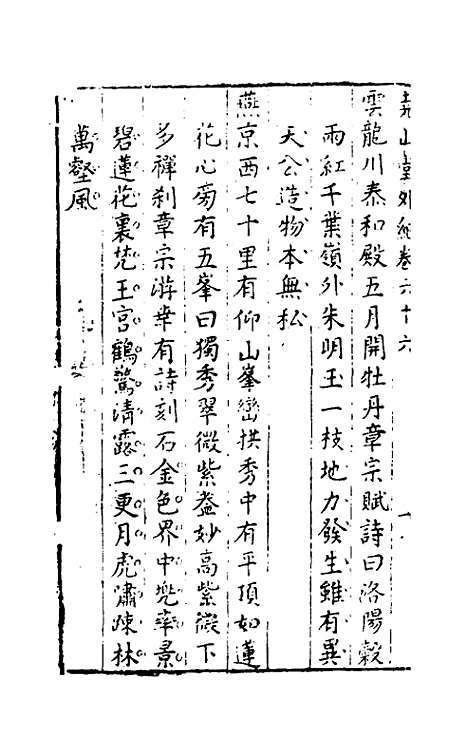 堯山堂外紀卷六十六
雲龍川泰和殿五月開牡丹章宗賦詩曰洛陽穀
雨紅千葉嶺外朱明玉一枝地力發生雖有異
天公造物本無私
燕京西七十里有仰山峯巒拱秀中有平頂如蓮
花心旁有五峯曰獨秀翠微紫盖妙高紫微下
多禪刹章宗游幸有詩刻石金色界中兠率景
碧蓮花裏梵王宮鶴驚清露三更月虎嘯疎林
萬壑風